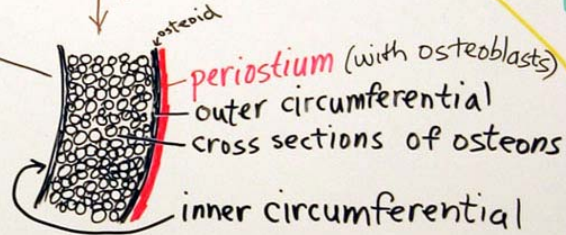 osteoid
periostium (with osteoblasts)
outer circumferential
cross sections of osteons
inner circumferential